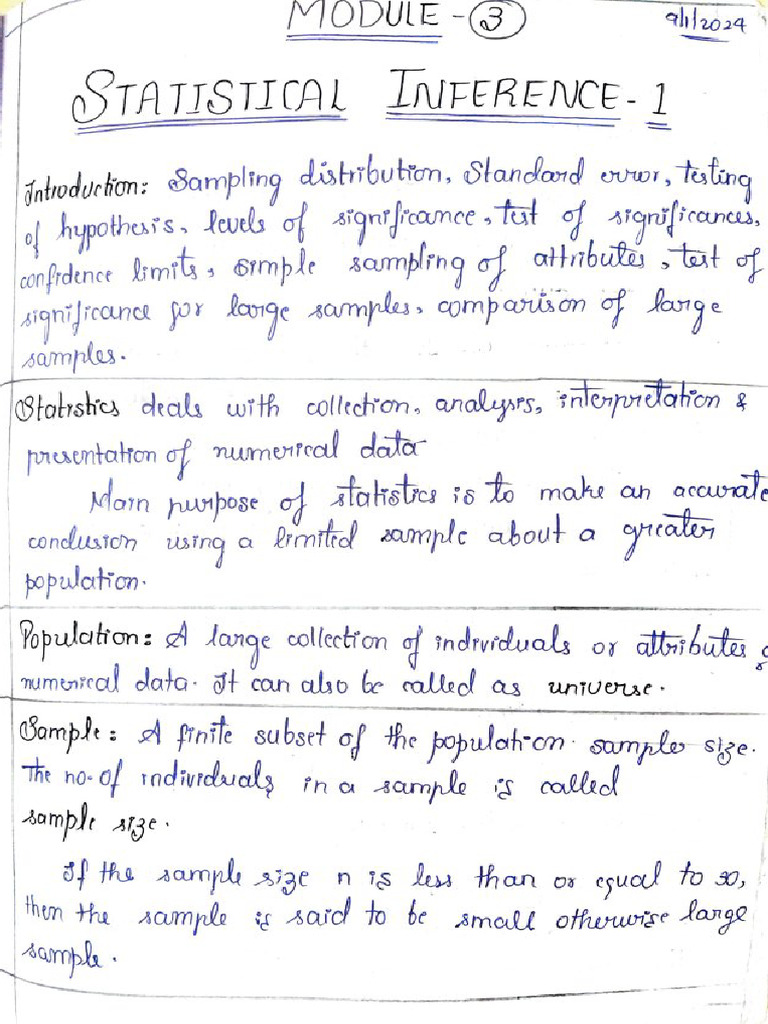 MODULE - 3
9/1/2024
STATISTICAL INFERENCE - 1
Introduction: Sampling distribution, Standard error, testing
of hypothesis, levels of significance, test of significances,
confidence limits, simple sampling of attributes, test of
significance for large samples, comparison of large
samples.
Statistics deals with collection, analysis, interpretation &
presentation of numerical data
Main purpose of statistics is to make an accurate
conclusion using a limited sample about a greater
population.
Population: A large collection of individuals or attributes
numerical data. It can also be called as universe.
Sample: A finite subset of the population. sample size.
The no. of individuals in a sample is called
sample size.
If the sample size n is less than or equal to 30,
then the sample is said to be small otherwise large
sample.